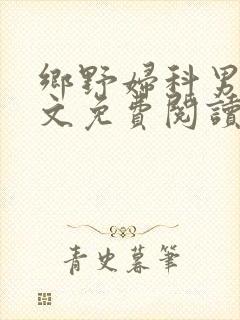 鄉野婦科男
文免費閱讀
青史暮筆